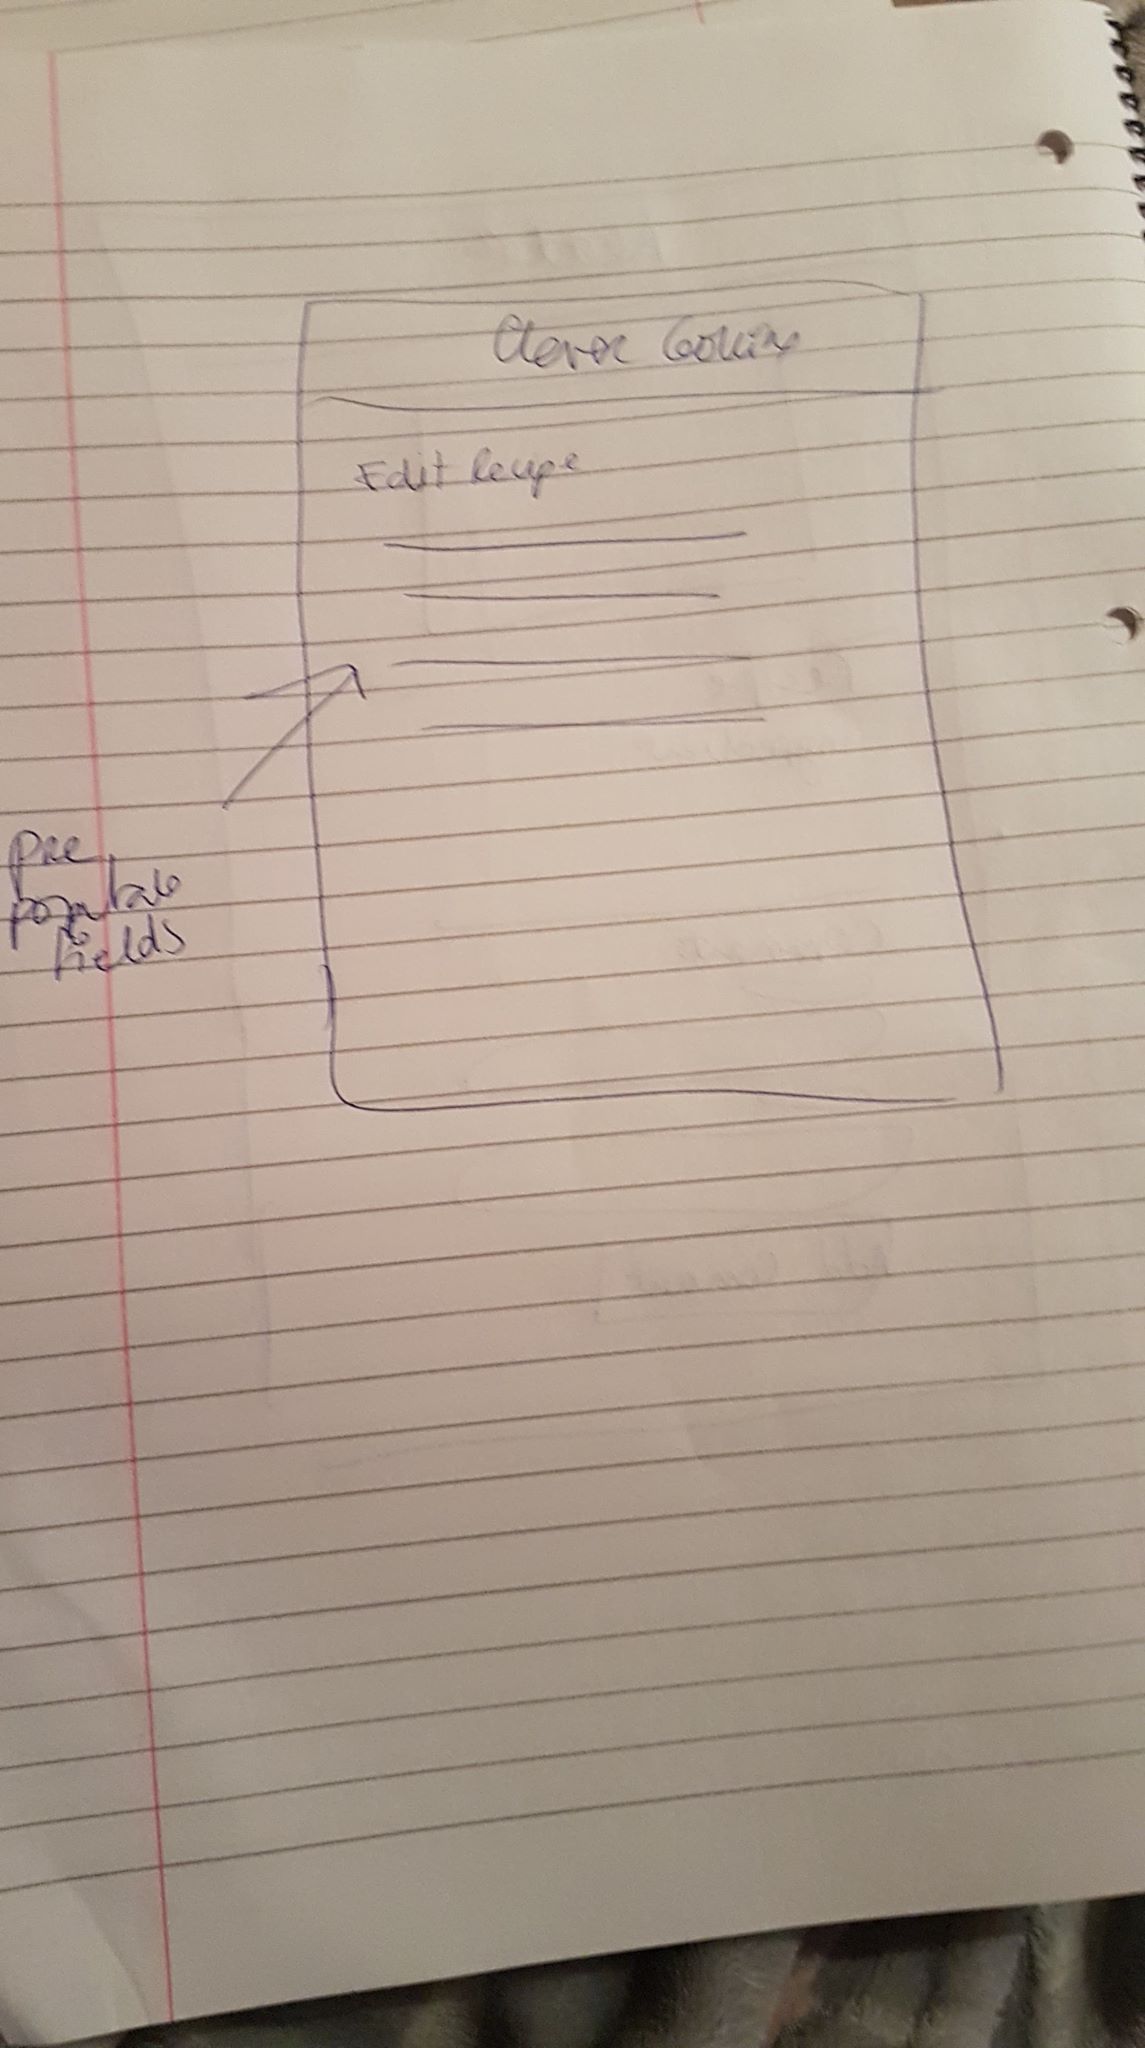 Clever Cooking
Edit Recipe
Pre
populate
fields